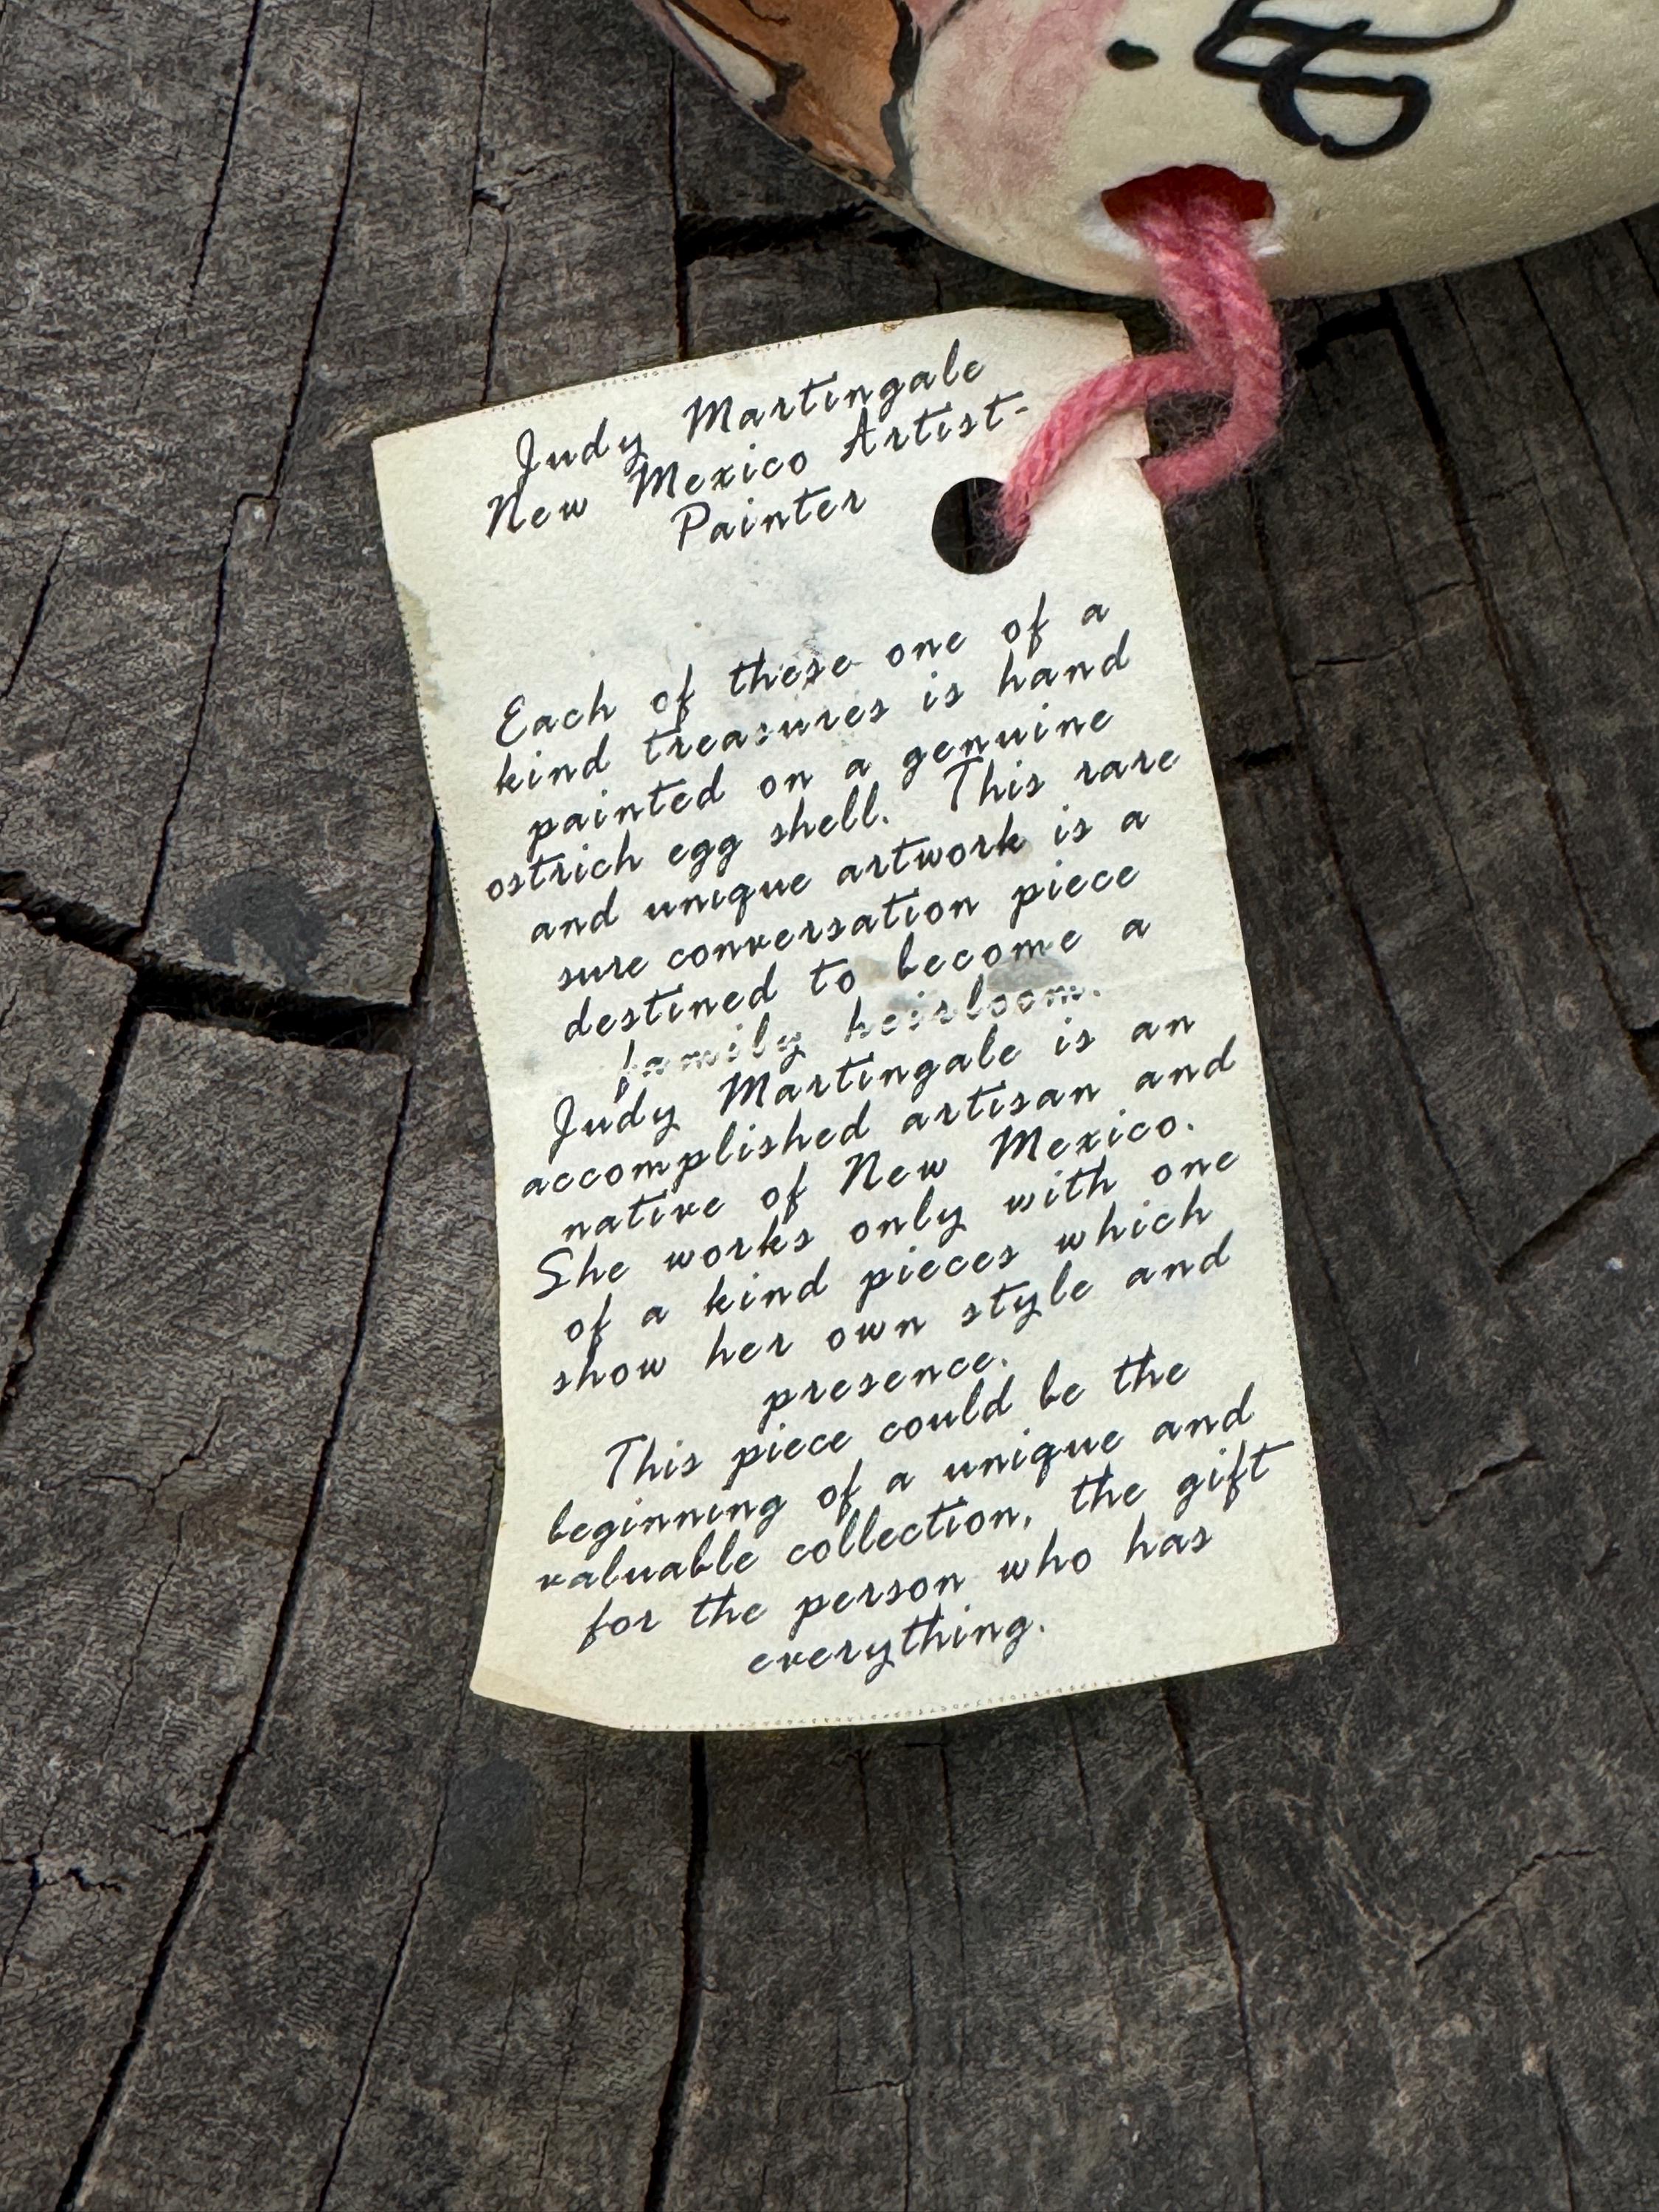 Judy Martingale
New Mexico Artist-
Painter
Each of these one of a
kind treasures is hand
painted on a genuine
ostrich egg shell. This rare
and unique artwork is a
sure conversation piece
destined to become a
family heirloom.
Judy Martingale is an
accomplished artisan and
native of New Mexico.
She works only with one
of a kind pieces which
show her own style and
presence.
This piece could be the
beginning of a unique and
valuable collection, the gift
for the person who has
everything.